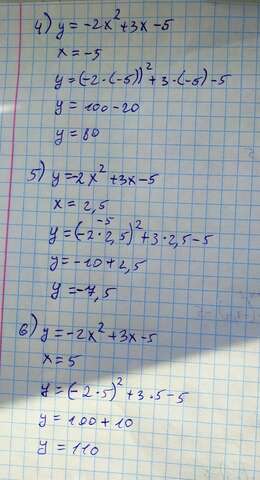 4) y = -2x² + 3x - 5
x = -5
y = (-2 · (-5))² + 3 · (-5) - 5
y = 100 - 20
y = 80
5) y = -2x² + 3x - 5
x = 2,5
-5
y = (-2 · 2,5)² + 3 · 2,5 - 5
y = -10 + 2,5
y = -7,5
6) y = -2x² + 3x - 5
x = 5
y = (-2 · 5)² + 3 · 5 - 5
y = 100 + 10
y = 110